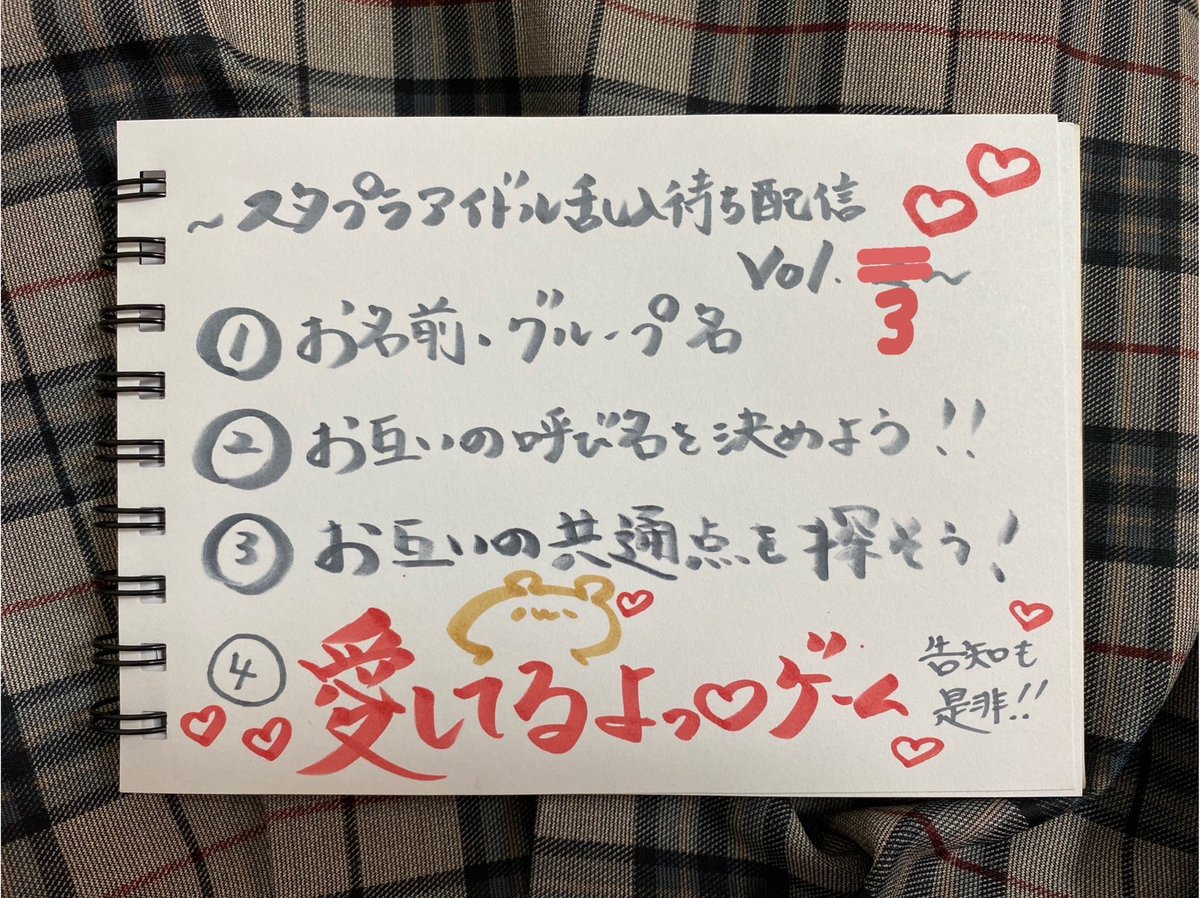 ~スタプラアイドル乱入待ち配信
Vol. 3~
①お名前、グループ名
②お互いの呼び名を決めよう!!
③お互いの共通点を探そう!
④愛してるよっ♡ゲーム
告知も
是非!!